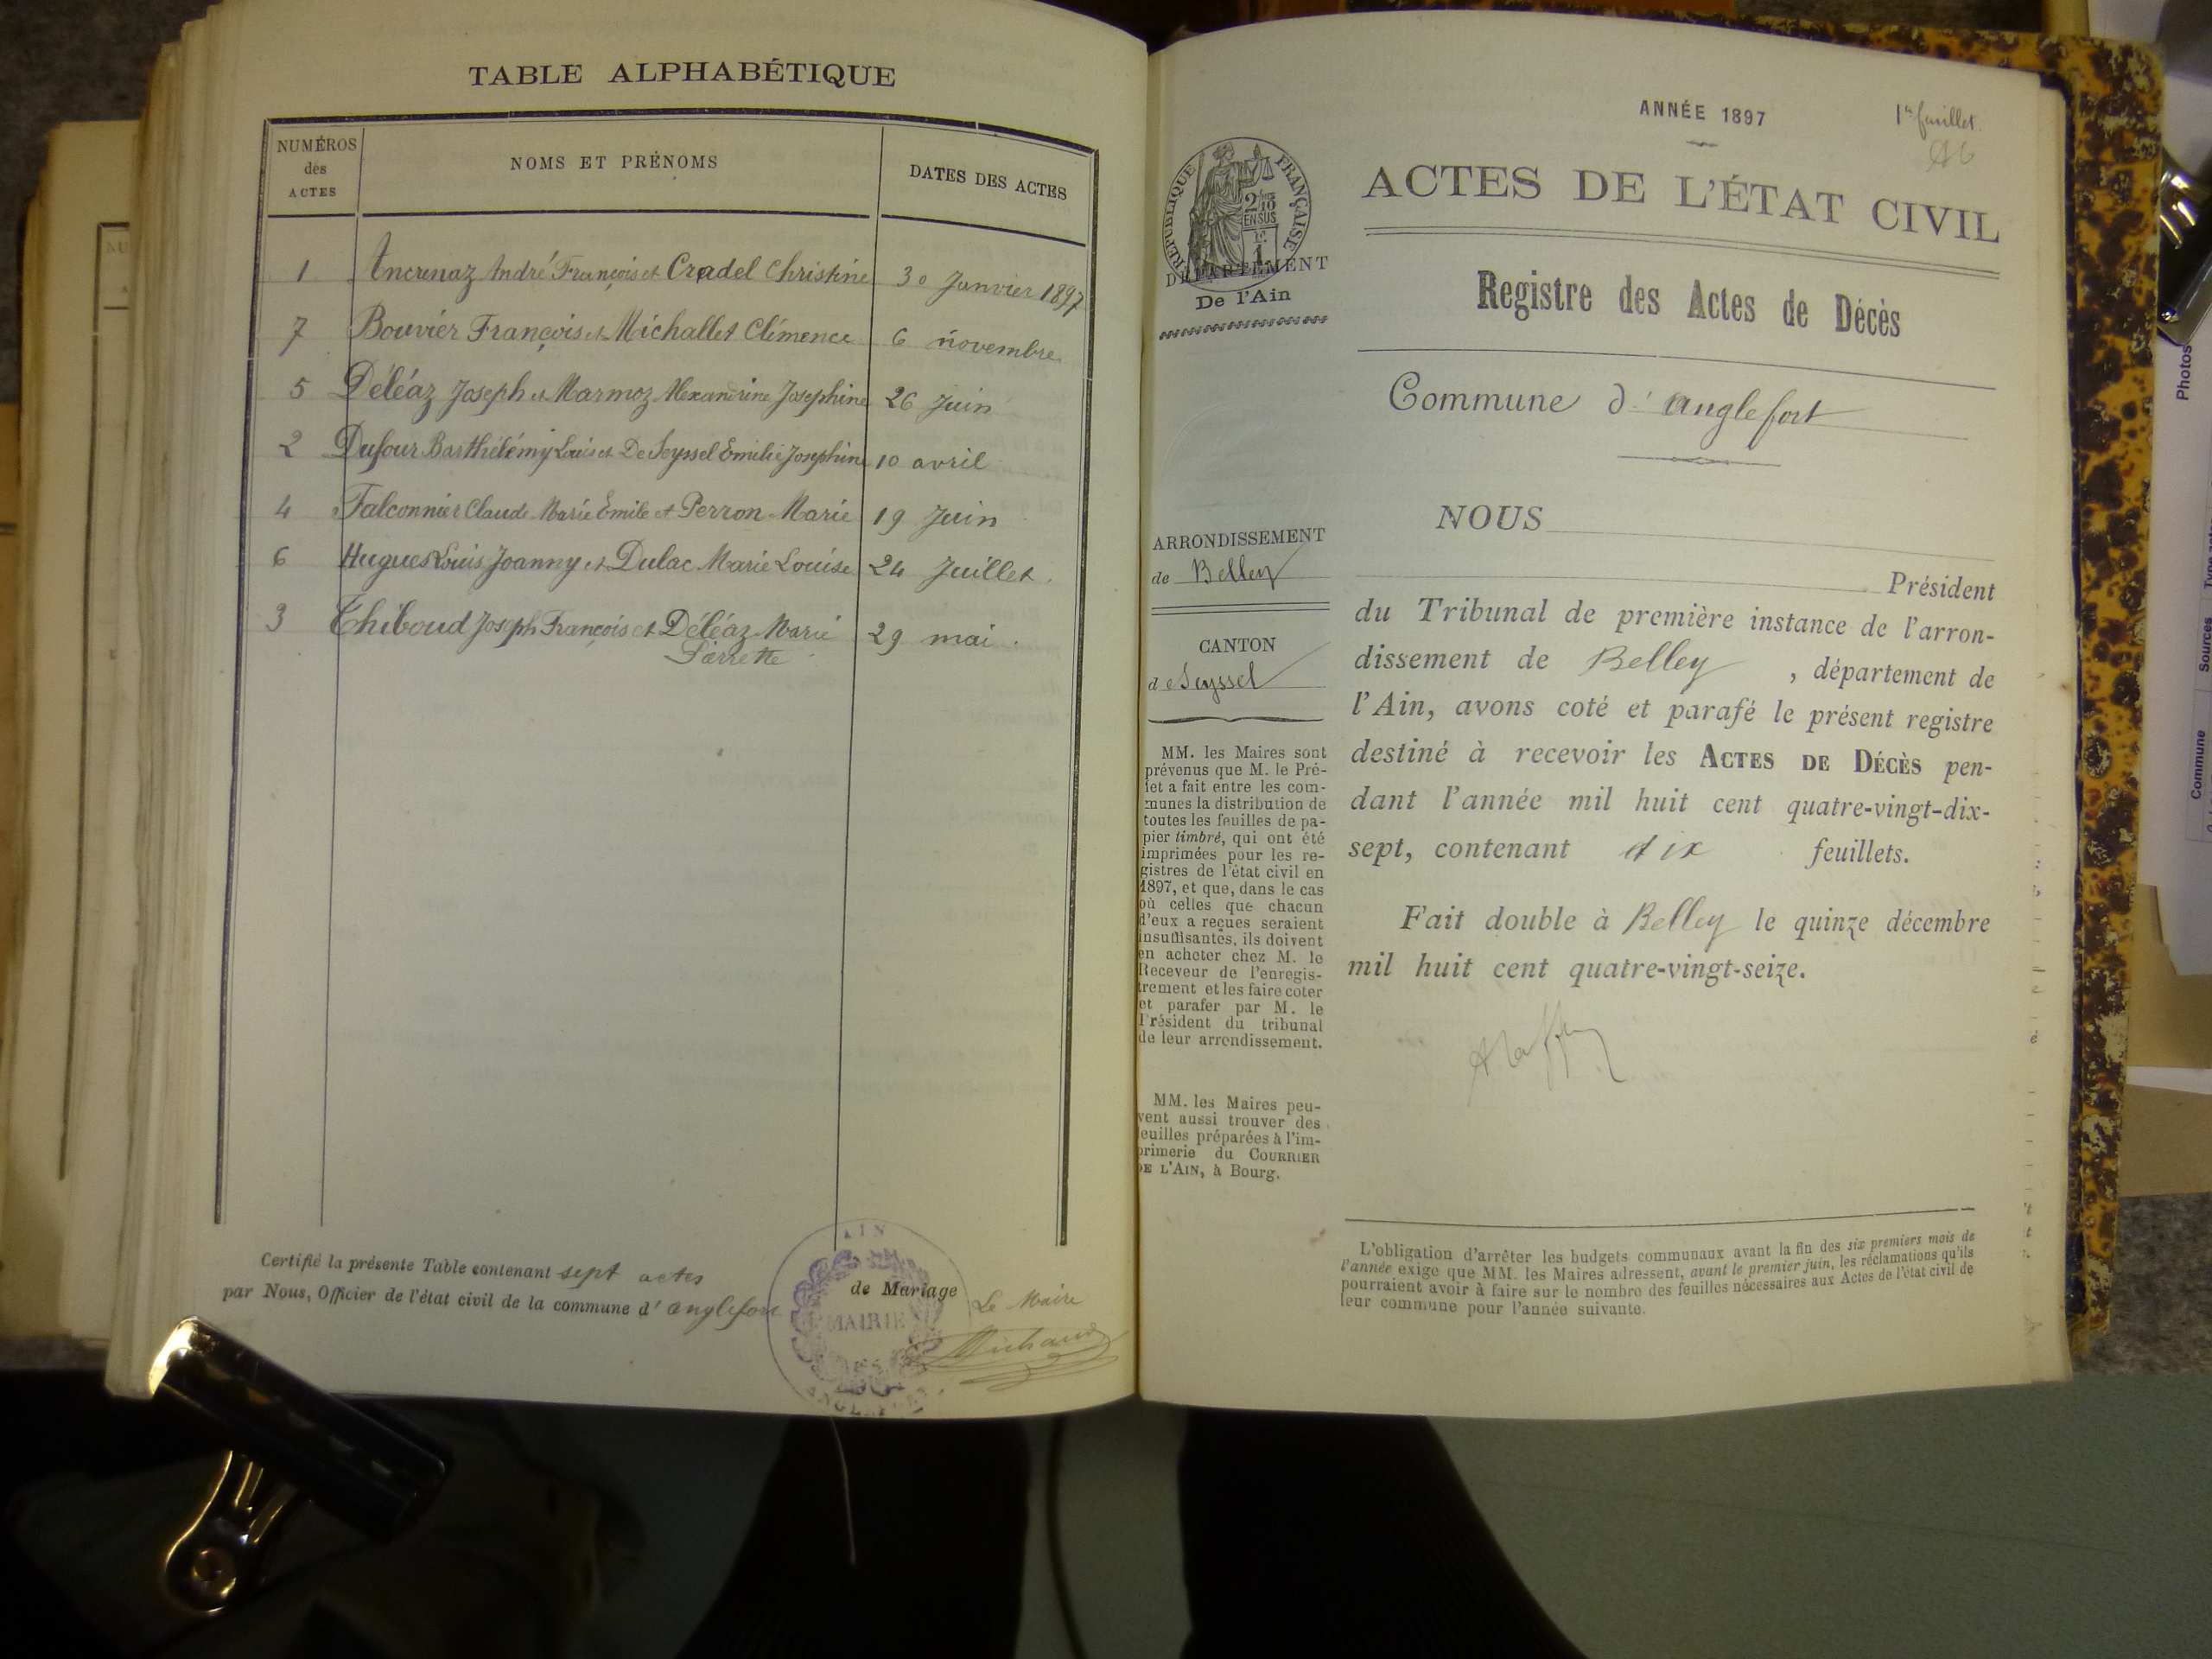 TABLE ALPHABÉTIQUE
NUMÉROS des ACTES
NOMS ET PRÉNOMS
DATES DES ACTES
1 Ancrenaz André François et Cradel Christine 30 Janvier 1897
7 Bouvier François et Michallet Clémence 6 novembre
5 Déléaz Joseph et Marmoz Alexandrine Josephine 26 Juin
2 Dufour Barthélémy Louis et De Seyssel Emilie Josephine 10 avril
4 Falconnier Claude Marie Emile et Perron Marie 19 Juin
6 Hugues Louis Joanny et Dulac Marie Louise 24 Juillet.
3 Thiboud Joseph François et Déléaz Marie 29 mai.
Pierrette
Certifié la présente Table contenant sept actes
de Mariage
par Nous, Officier de l'état civil de la commune d' anglefort
Le Maire
Michaud
AIN
MAIRIE
ANNÉE 1897
1er feuillet.
RÉPUBLIQUE FRANÇAISE
2/10
EN SUS
1
ACTES DE L'ÉTAT CIVIL
DÉPARTEMENT
De l'Ain
Registre des Actes de Décès
Commune d' anglefort
ARRONDISSEMENT
de Belley
CANTON
de Seyssel
MM. les Maires sont
prévenus que M. le Pré-
fet a fait entre les com-
munes la distribution de
toutes les feuilles de pa-
pier timbré, qui ont été
imprimées pour les re-
gistres de l'état civil en
1897, et que, dans le cas
où celles que chacun
d'eux a reçues seraient
insuffisantes, ils doivent
en acheter chez M. le
Receveur de l'enregis-
trement et les faire coter
et parafer par M. le
Président du tribunal
de leur arrondissement.
MM. les Maires peu-
vent aussi trouver des
feuilles préparées à l'im-
primerie du COURRIER
DE L'AIN, à Bourg.
NOUS
Président
du Tribunal de première instance de l'arron-
dissement de Belley , département de
l'Ain, avons coté et parafé le présent registre
destiné à recevoir les ACTES DE DÉCÈS pen-
dant l'année mil huit cent quatre-vingt-dix-
sept, contenant dix feuillets.
Fait double à Belley le quinze décembre
mil huit cent quatre-vingt-seize.
L'obligation d'arrêter les budgets communaux avant la fin des six premiers mois de
l'année exige que MM. les Maires adressent, avant le premier juin, les réclamations qu'ils
pourraient avoir à faire sur le nombre des feuilles nécessaires aux Actes de l'état civil de
leur commune pour l'année suivante.
Photos
Sources
Commune